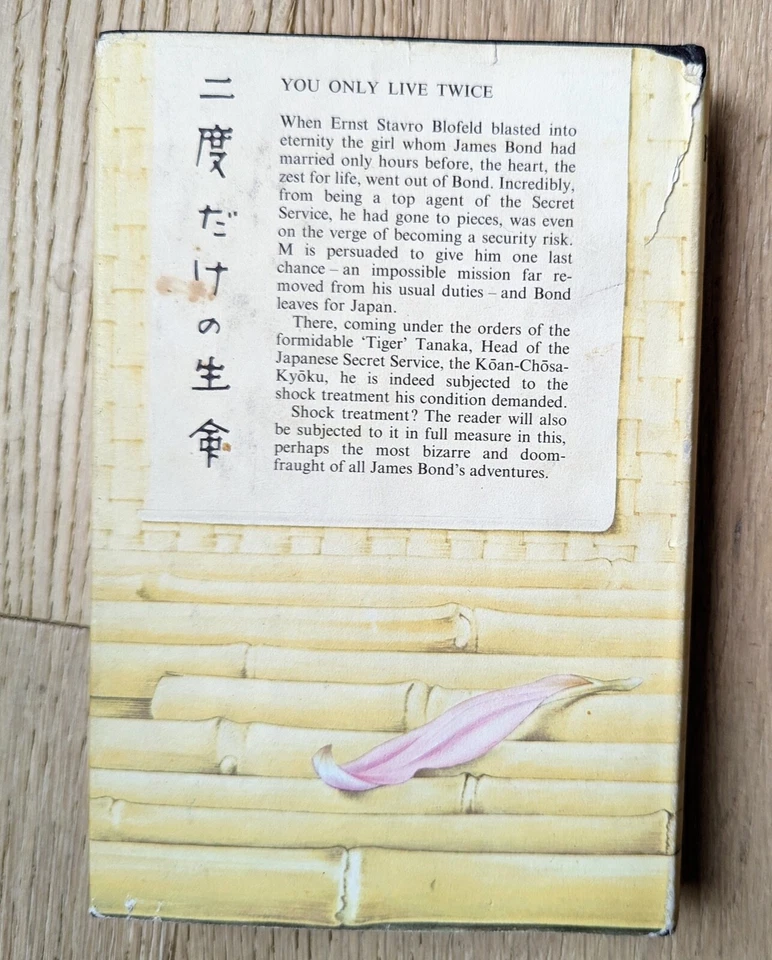 二度だけの生命
YOU ONLY LIVE TWICE
When Ernst Stavro Blofeld blasted into
eternity the girl whom James Bond had
married only hours before, the heart, the
zest for life, went out of Bond. Incredibly,
from being a top agent of the Secret
Service, he had gone to pieces, was even
on the verge of becoming a security risk.
M is persuaded to give him one last
chance – an impossible mission far re-
moved from his usual duties – and Bond
leaves for Japan.
There, coming under the orders of the
formidable ‘Tiger’ Tanaka, Head of the
Japanese Secret Service, the Kōan-Chōsa-
Kyōku, he is indeed subjected to the
shock treatment his condition demanded.
Shock treatment? The reader will also
be subjected to it in full measure in this,
perhaps the most bizarre and doom-
fraught of all James Bond’s adventures.